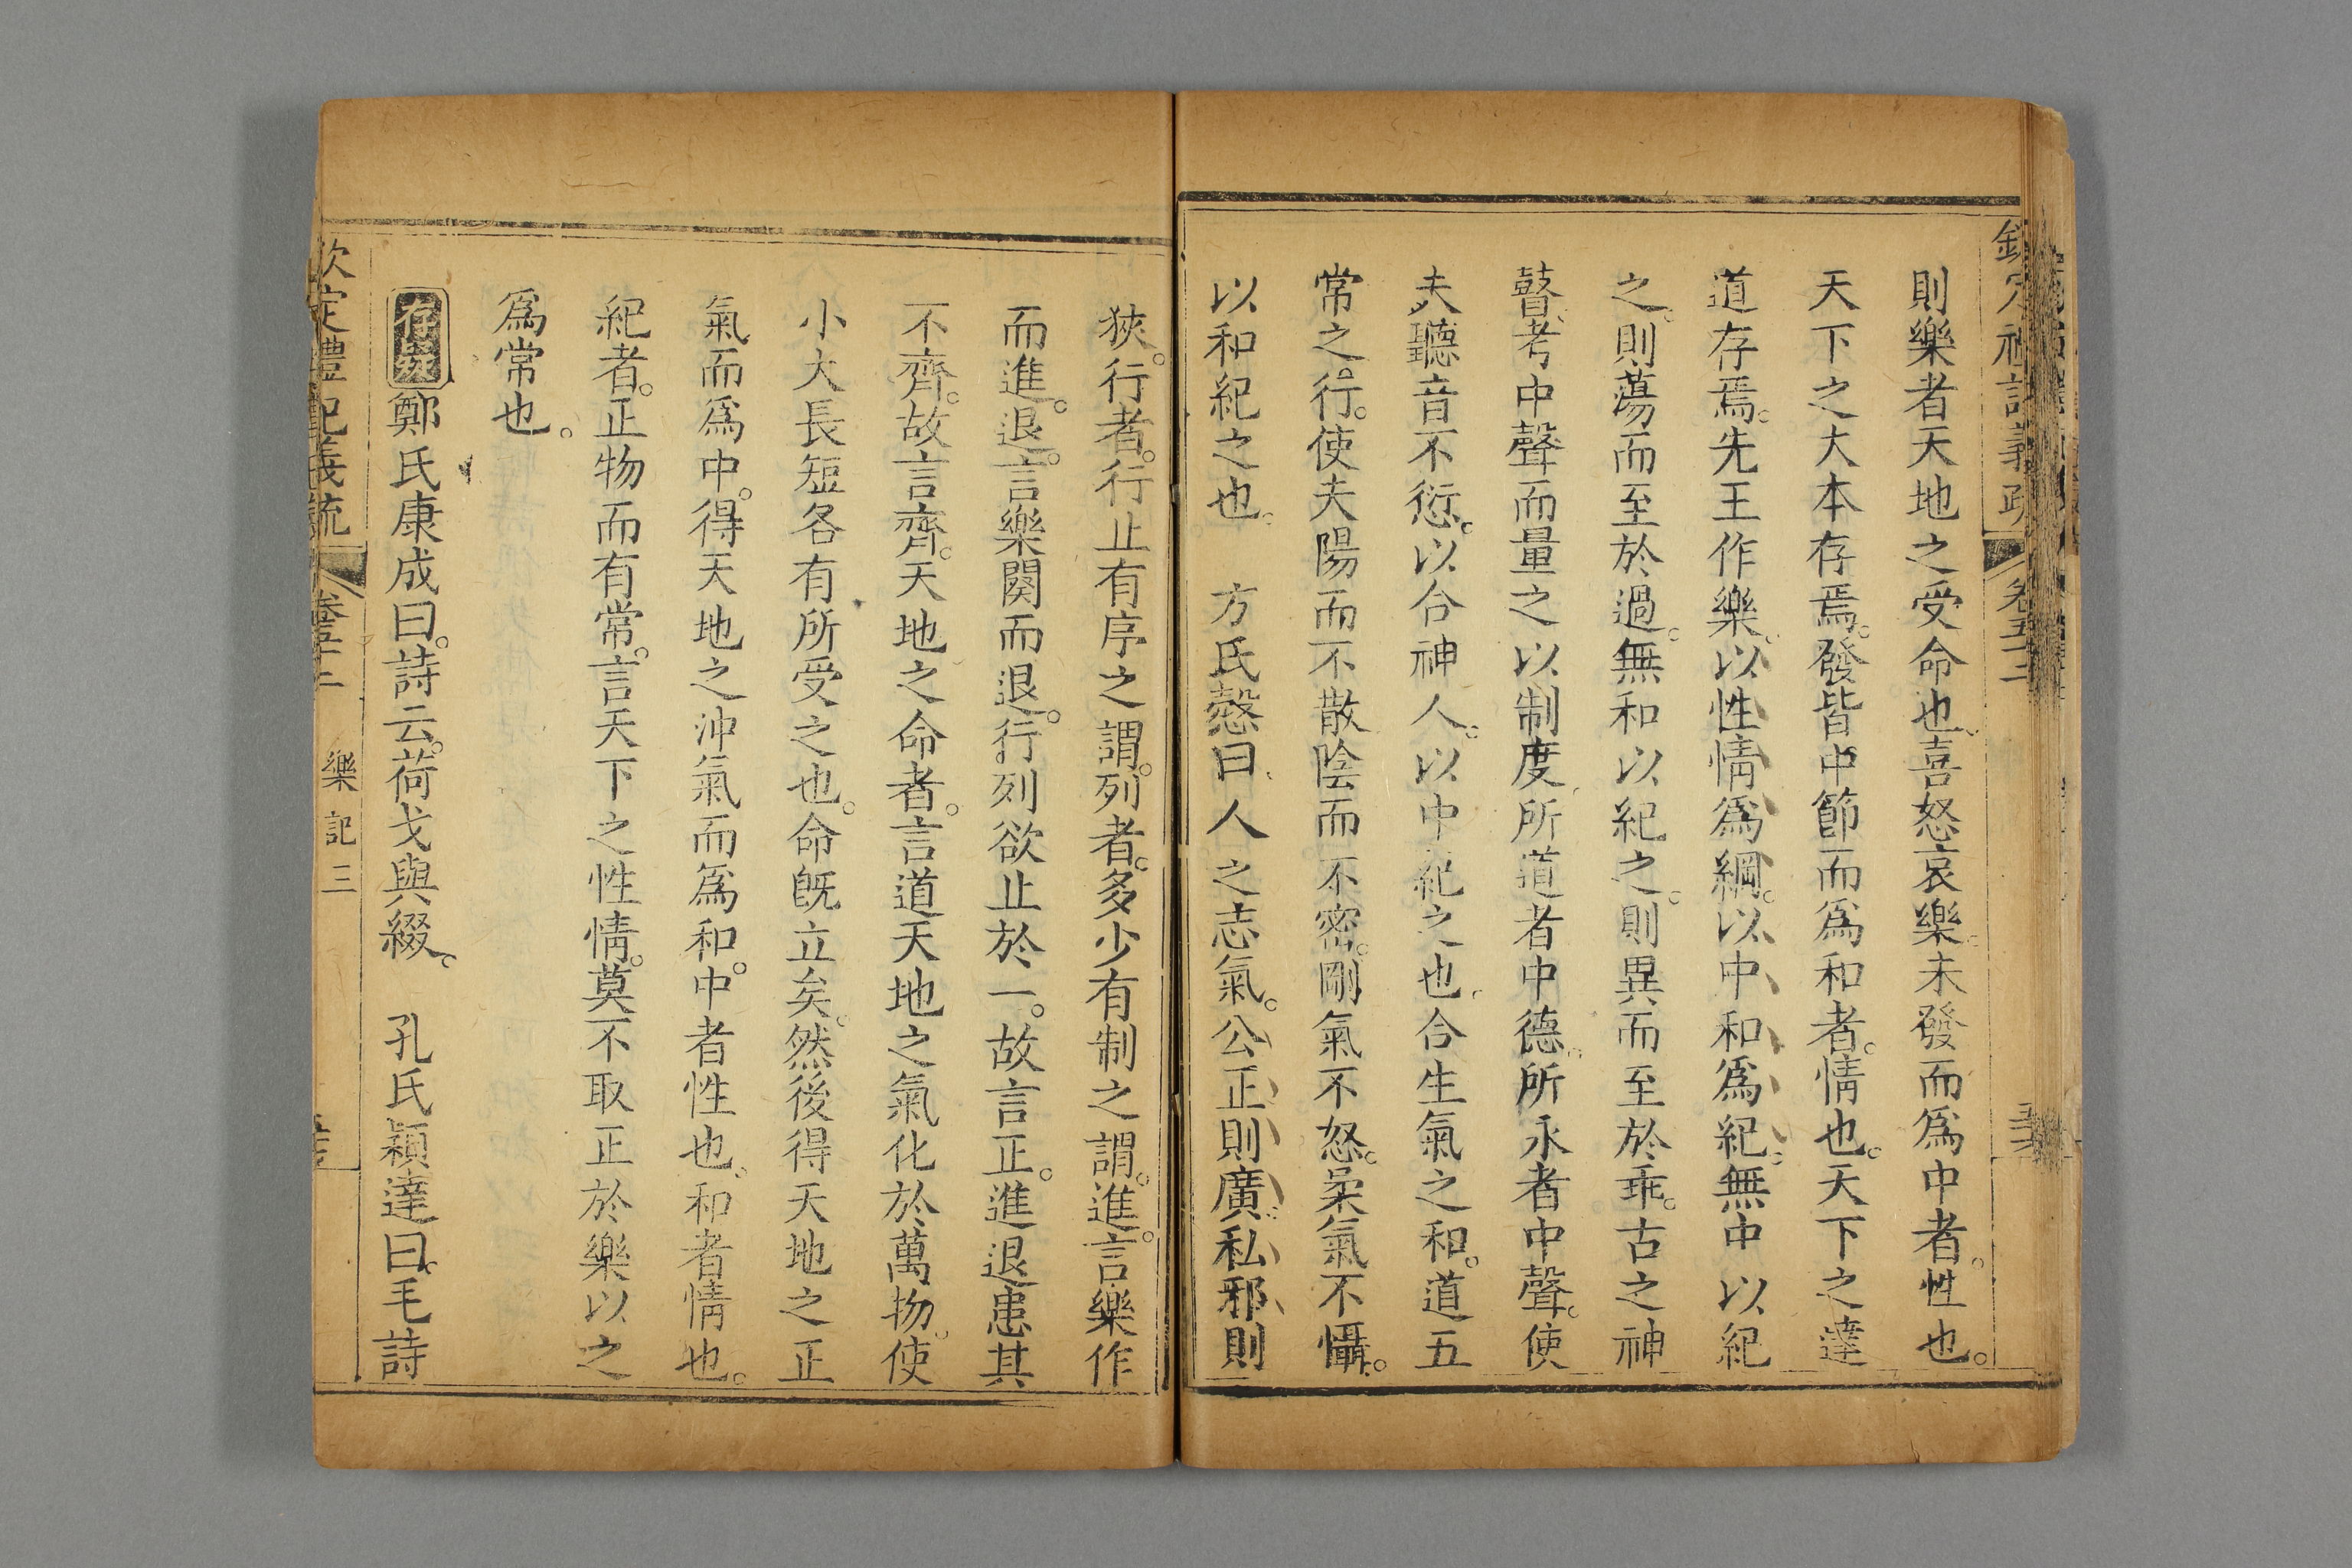 則樂者天地之受命也喜怒哀樂未發而爲中者。性也。
天下之大本存焉。發皆中節而爲和者。情也。天下之達
道存焉。先王作樂以性情爲綱。以中和爲紀。無中以紀
之。則蕩而至於過。無和以紀之。則異而至於乖。古之神
瞽考中聲而量之以制度所道者中德。所永者中聲。使
夫聽音不愆。以合神人。以中紀之也合生氣之和。道五
常之。行。使夫陽而不散陰而不密。剛氣不怒。柔氣不懾。
以和紀之也。 方氏慤曰人之志氣。公正則廣私邪則
狹。行者。行止有序之謂。列者。多少有制之謂。進。言樂作
而進。退。言樂闋而退。行列欲止於一。故言正。進退患其
不齊。故言齊。天地之命者。言道天地之氣化於萬物。使
小大長短各有所受之也。命旣立矣。然後得天地之正
氣而爲中。得天地之沖氣而爲和。中者性也和者情也。
紀者。正物而有常。言天下之性情。莫不取正於樂以之
爲常也。
存異鄭氏康成曰。詩云。荷戈與綴。 孔氏穎達曰。毛詩
欽定禮記義疏 卷五十二 樂記三